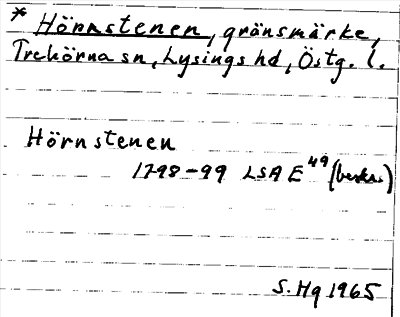 * Hörnstenen, gränsmärke,
Trehörna sn, Lysings hd, Östg. l.
Hörnstenen
1798-99 LSA E 49 (beskr.)
S. Hg 1965